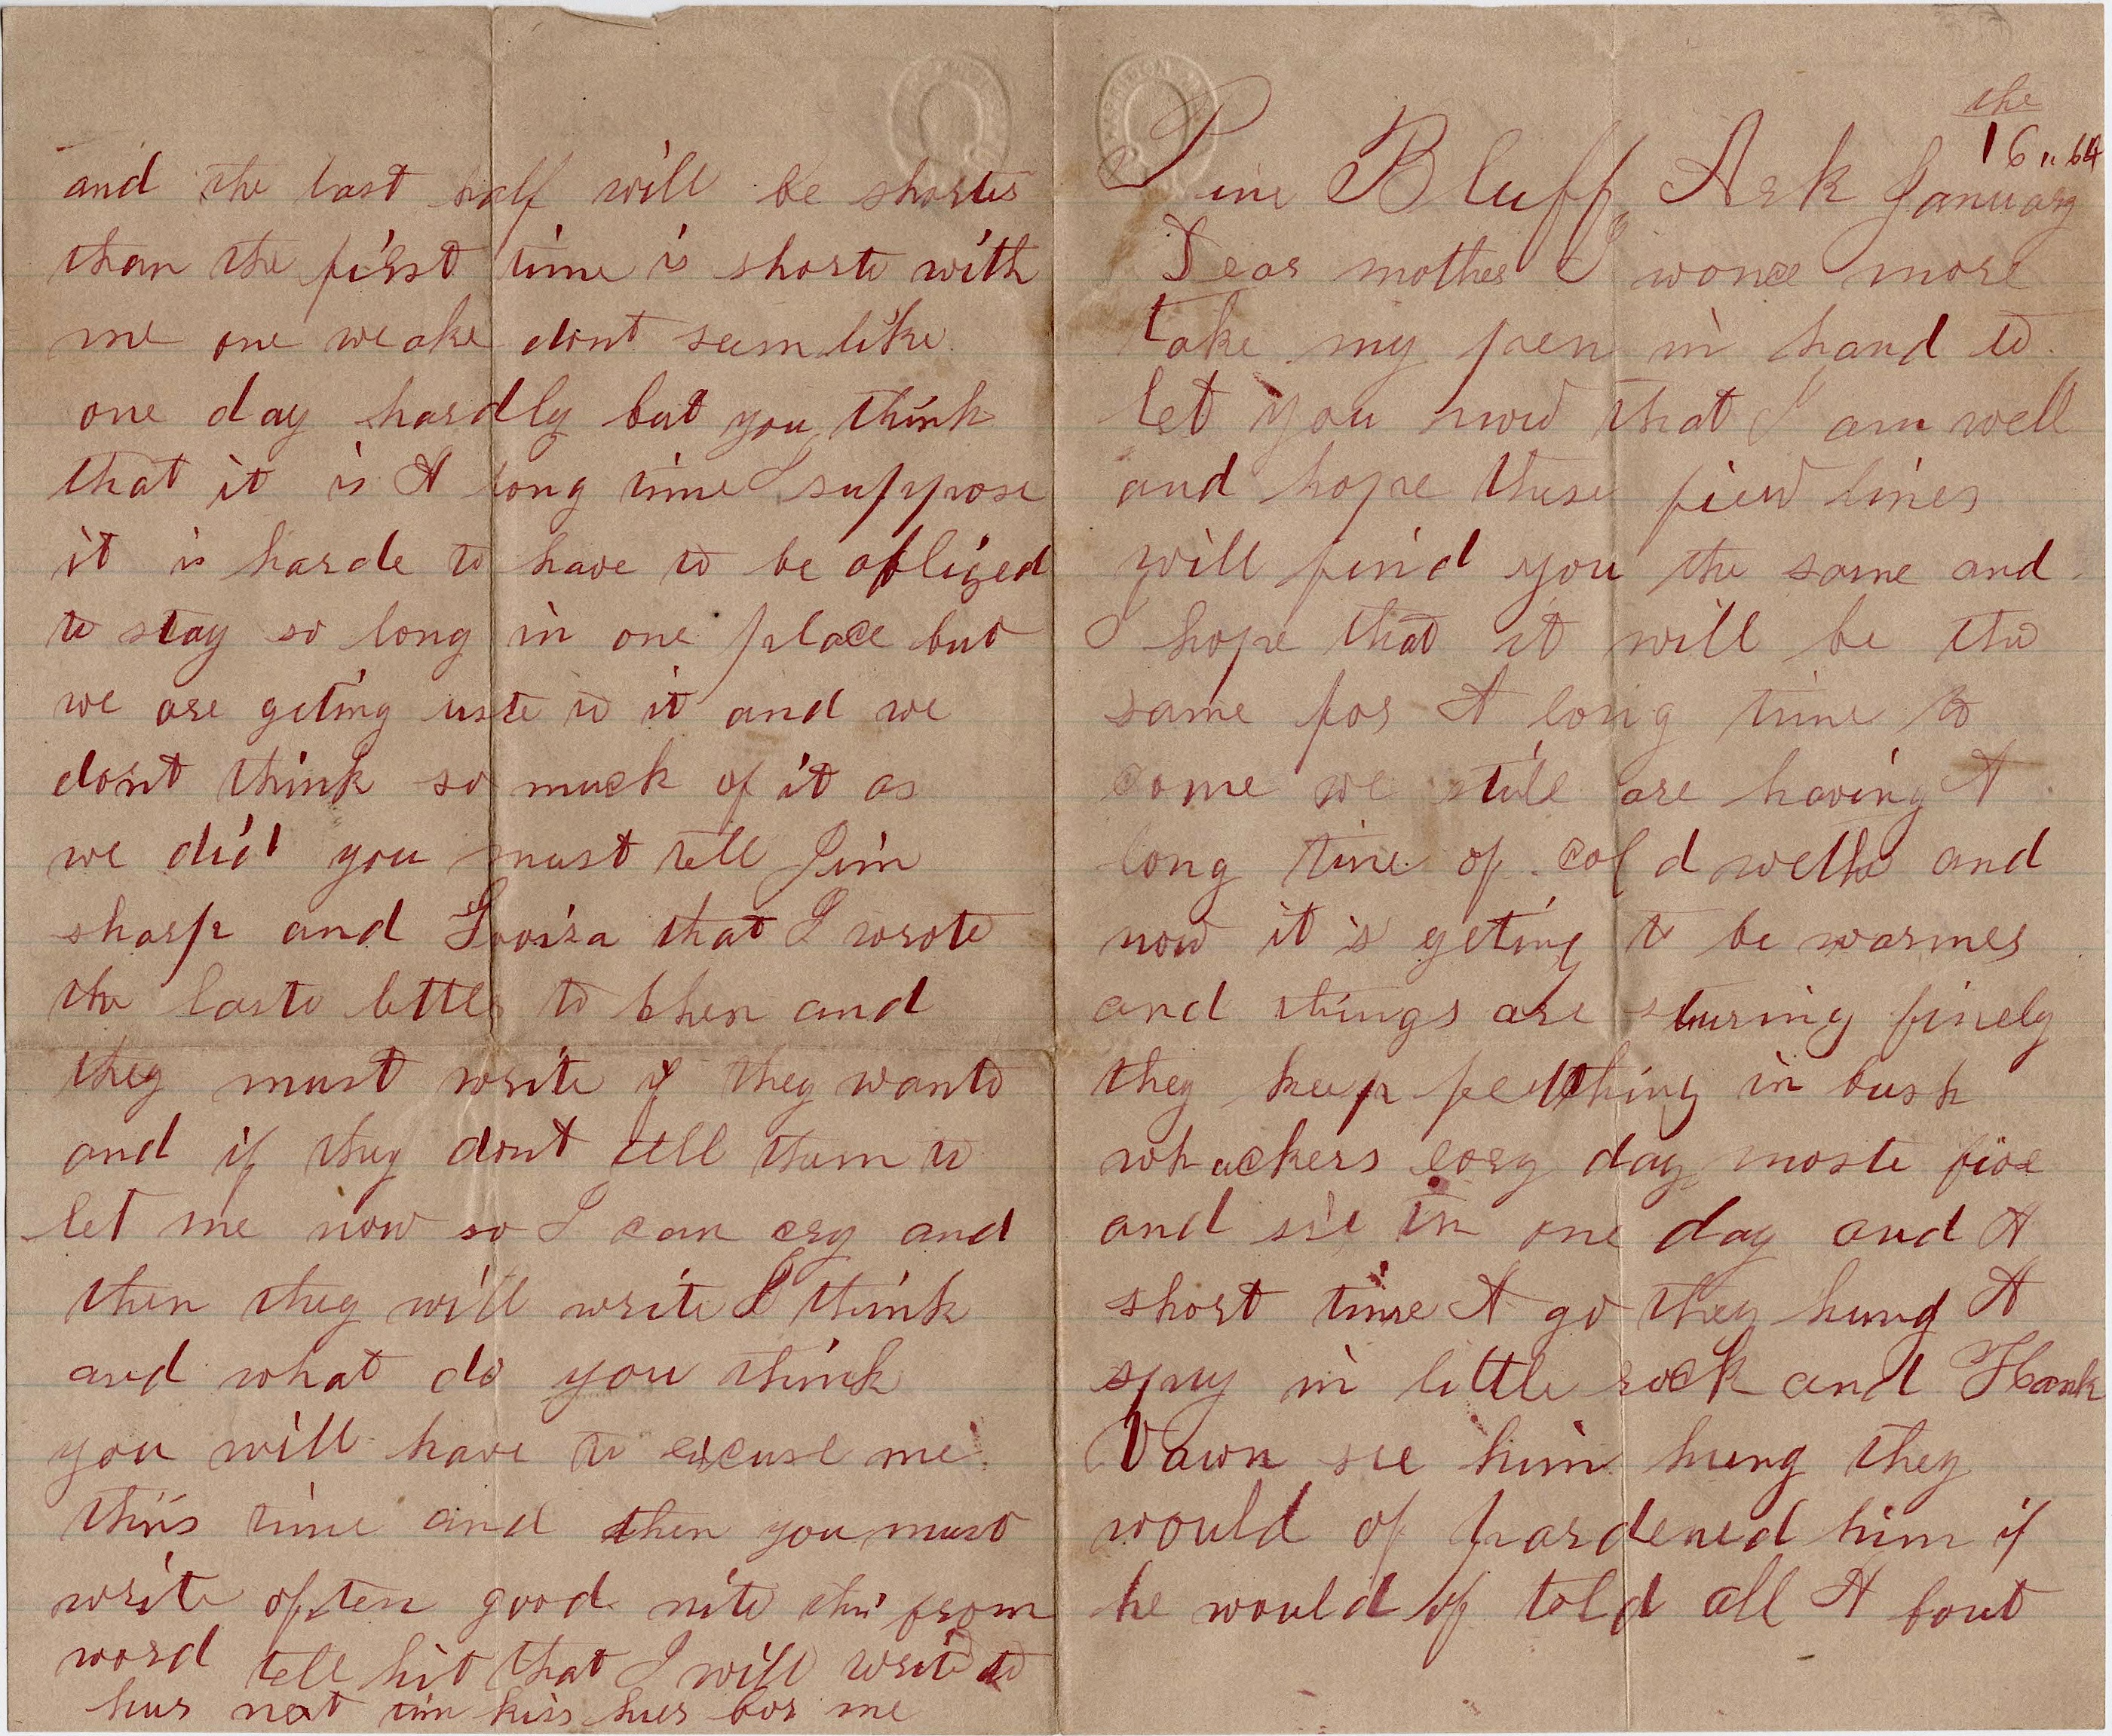 Pine Bluff, Ark January the 16 " 64
Dear mother I wonce more
take my pen in hand to
let you now that I am well
and hope these fiew lines
will find you the same and
I hope that it will be the
same for A long time to
come we still are having A
long time of cold wethe and
now it is geting to be warmer
and things are sturing finely
they keep fetching in bush
whackers evry day moste five
and six in one day and A
short time A go they hung A
spy in little rock and Hank
Vawn see him hung they
would of pardened him if
he would of told all A bout
and the last half will be shorter
than the first time is shorte with
me one weake dont seem like
one day hardly but you think
that it is A long time I suppose
it is harde to have to be obliged
to stay so long in one place but
we are geting uste to it and we
dont think so muck of it as
we did you must tell Jim
sharp and Lovisa that I wrote
the laste letter to them and
they must write if they wante
and if they dont tell them to
let me now so I can cry and
then they will write I think
and what do you think
you will have to excuse me
this time and then you must
write often good nite this from
word tell hit that I will write to
hur next tim kiss hur for me